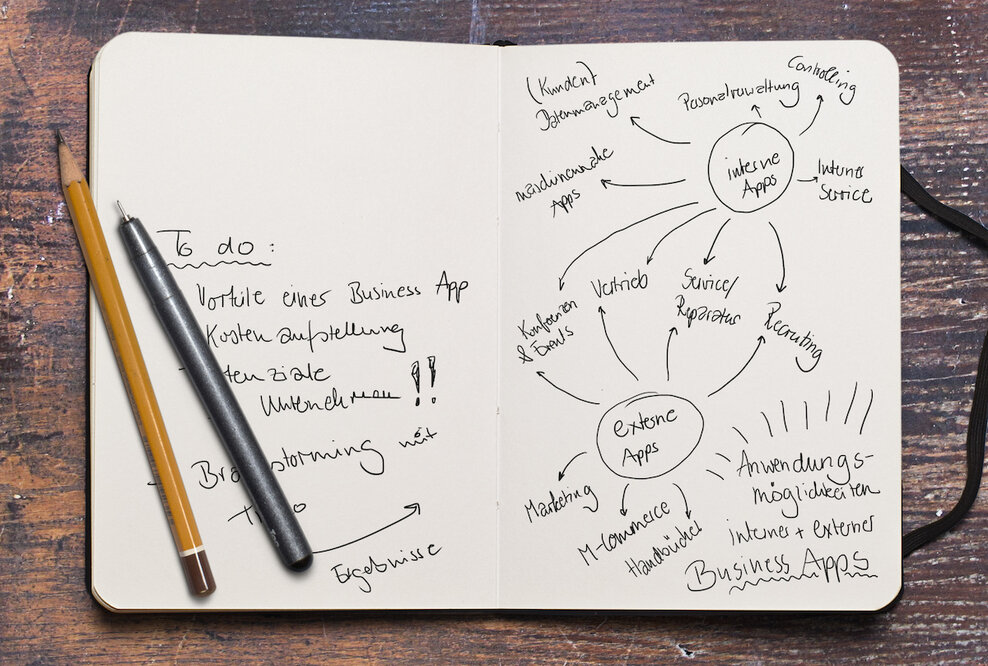 To do :
Vorteile einer Business App
Kostenaufstellung
tenziale
Unternehmen !!
Brainstorming mit
Ergebnisse
(Kunden)
Datenmanagement
Personalverwaltung
Controlling
maschinennahe
Apps
interne
Apps
Interner
Service
Konferenzen
& Events
Vertrieb
Service/
Reparatur
Recruiting
externe
Apps
Marketing
M-Commerce
Handbücher
Anwendungs-
möglichkeiten
interner + externer
Business Apps